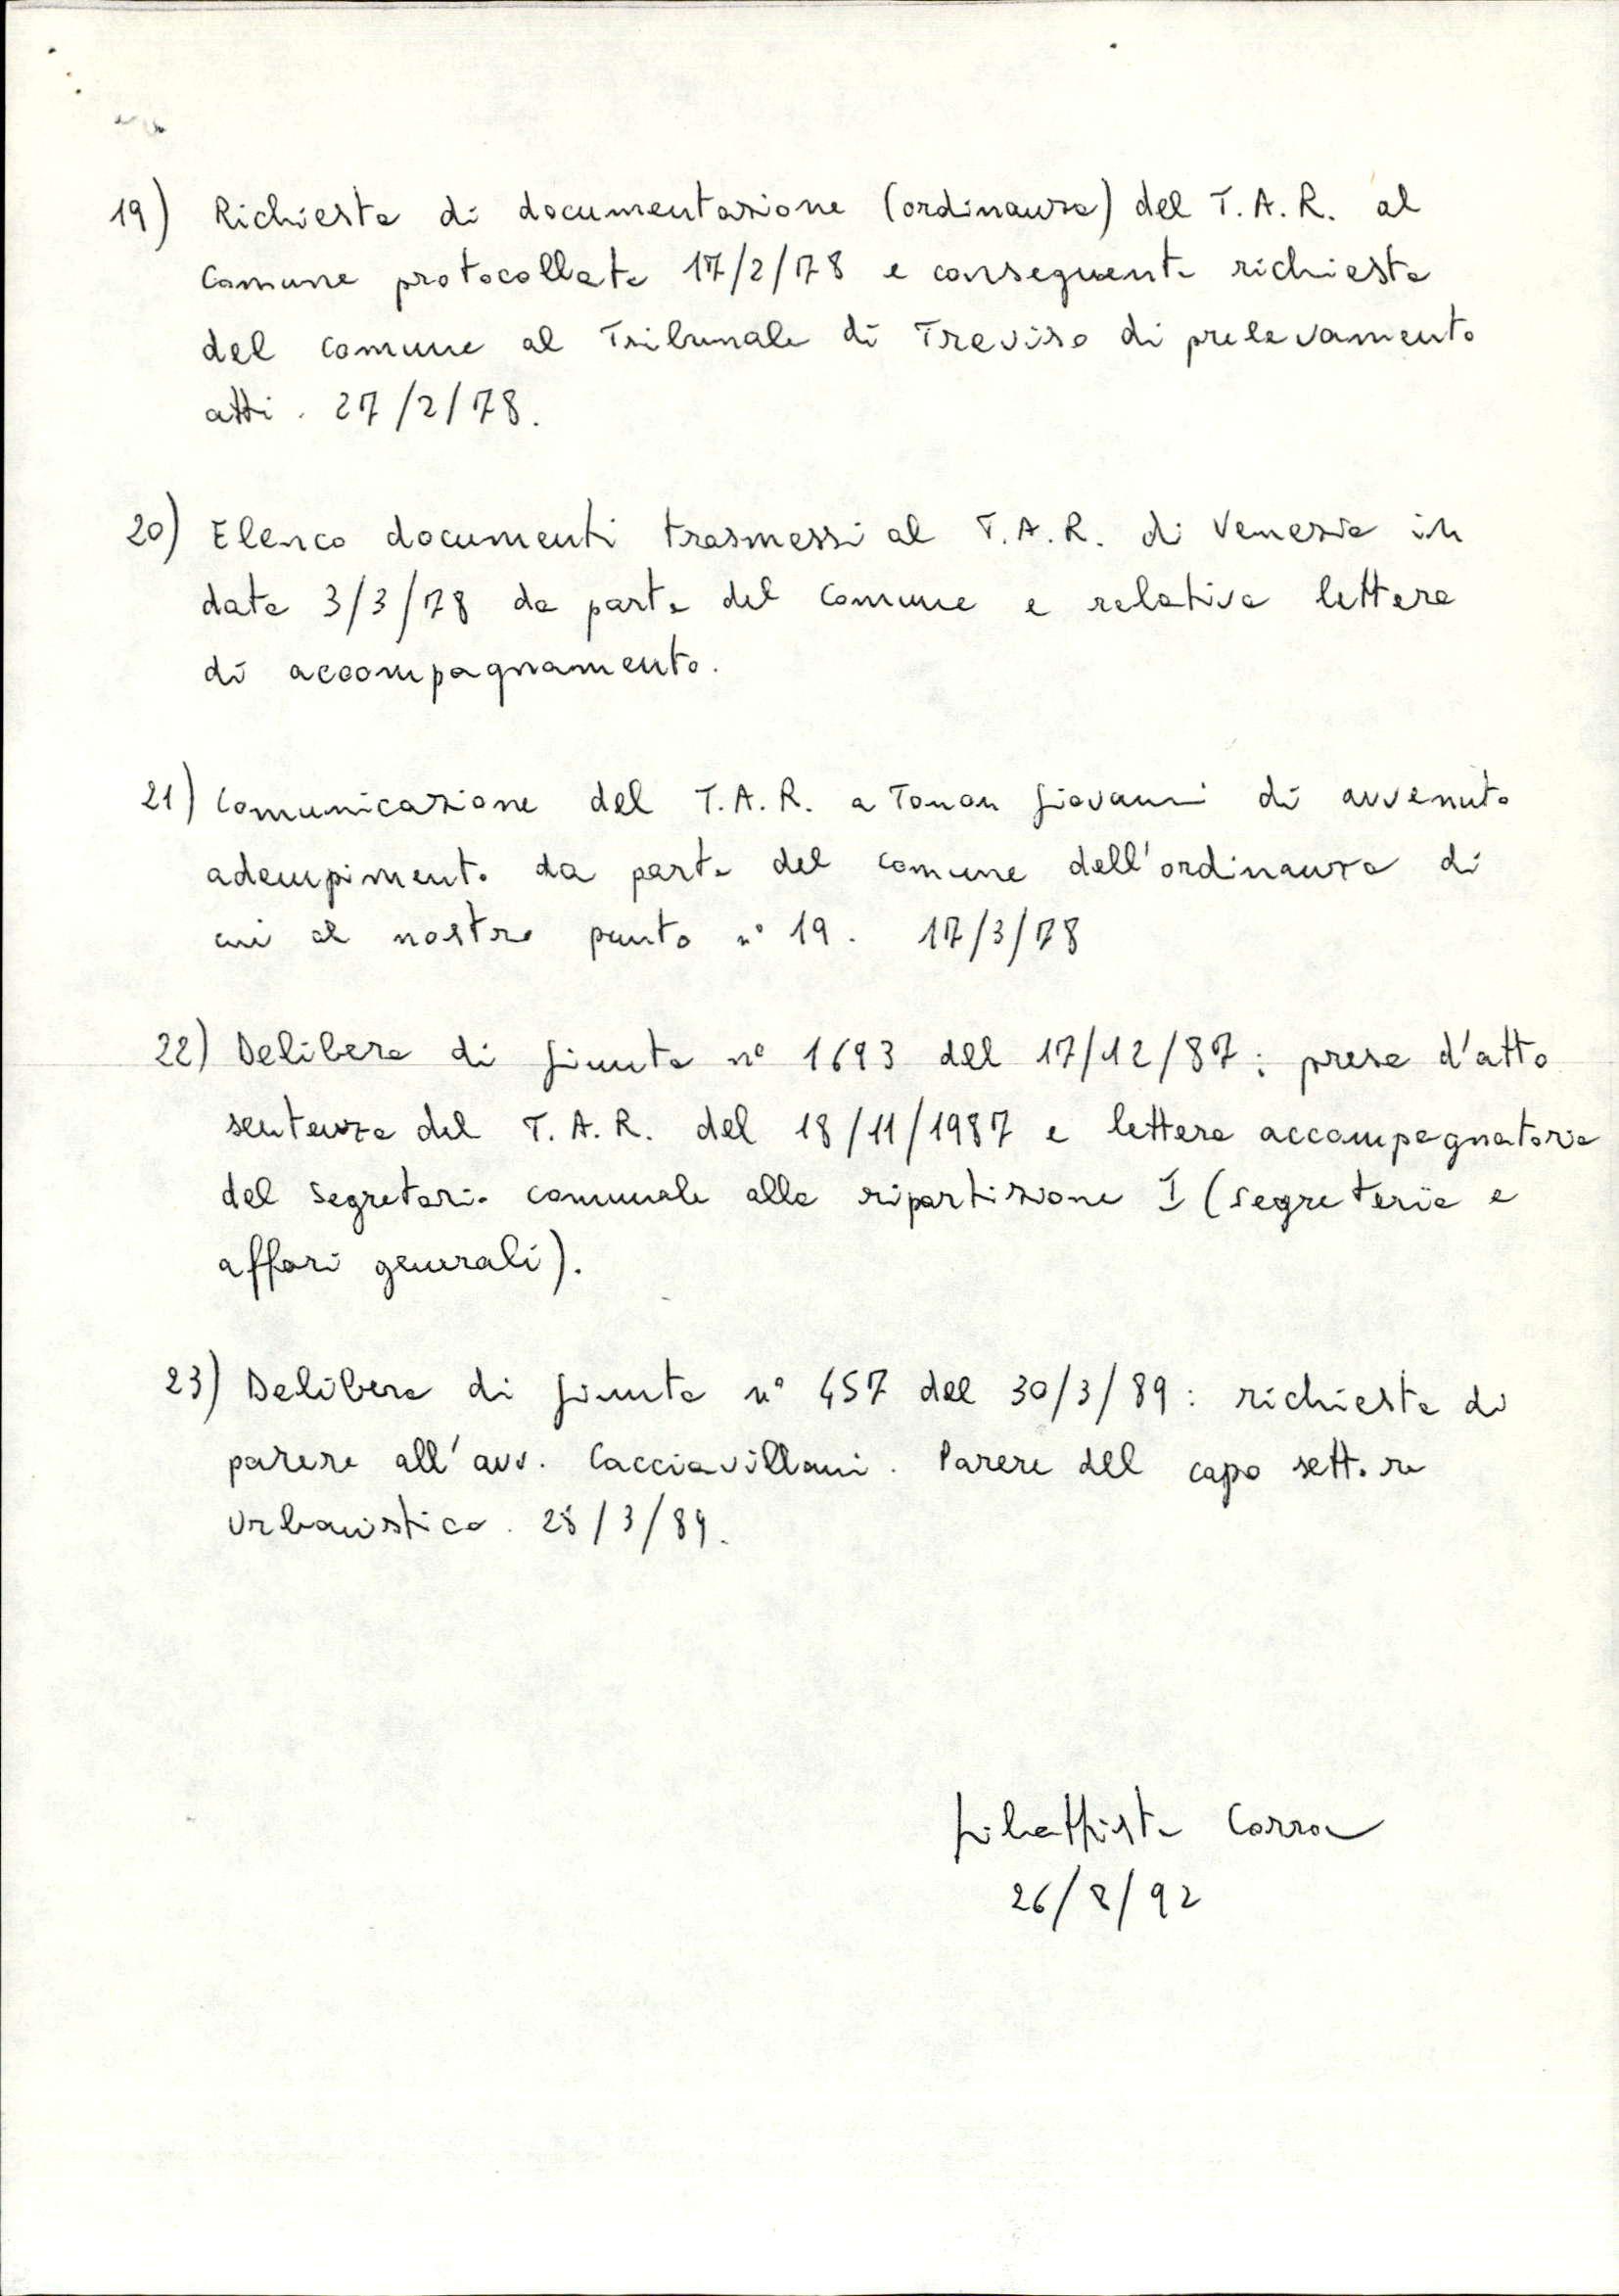 19) Richiesta di documentazione (ordinanza) del T.A.R. al
Comune protocollata 17/2/78 e conseguente richiesta
del comune al Tribunale di Treviso di prelevamento
atti. 27/2/78.
20) Elenco documenti trasmessi al T.A.R. di Venezia in
data 3/3/78 da parte del Comune e relativa lettera
di accompagnamento.
21) Comunicazione del T.A.R. a Tonon Giovanni di avvenuto
adempimento da parte del comune dell'ordinanza di
cui al nostro punto n° 19. 17/3/78
22) Delibera di Giunta n° 1693 del 17/12/87: presa d'atto
sentenza del T.A.R. del 18/11/1987 e lettera accompagnatoria
del Segretario comunale alla ripartizione I (segreteria e
affari generali).
23) Delibera di Giunta n° 457 del 30/3/89: richiesta di
parere all'avv. Cacciavillani. Parere del capo settore
Urbanistico. 28/3/89.
Gibattista
26/8/92